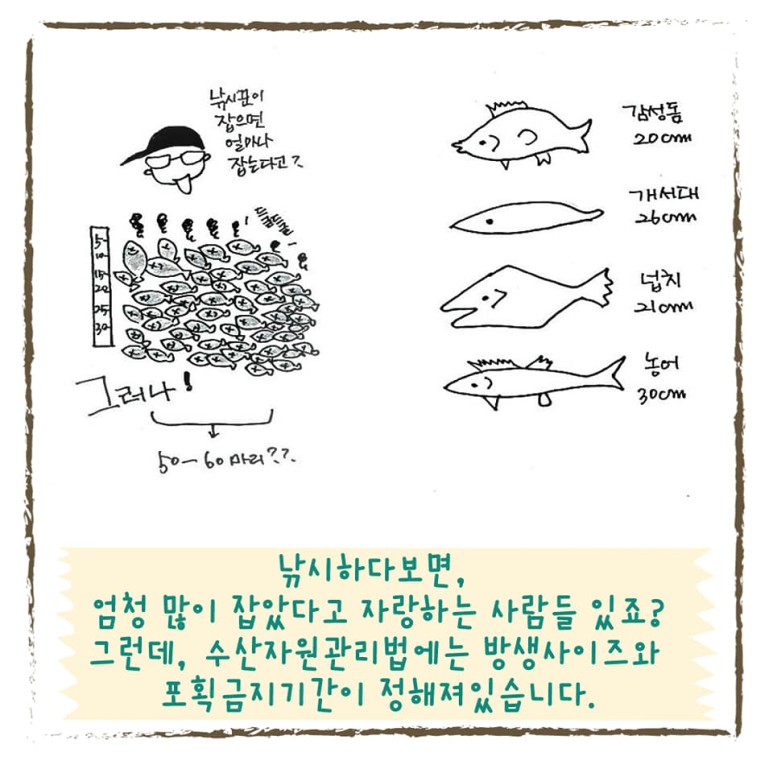 낚시꾼이
잡으면
얼마나
잡는다고?
5
10
15
20
25
30
그러나!
50-60마리??
감성돔
20cm
개서대
26cm
넙치
21cm
농어
30cm
낚시하다보면,
엄청 많이 잡았다고 자랑하는 사람들 있죠?
그런데, 수산자원관리법에는 방생사이즈와
포획금지기간이 정해져있습니다.